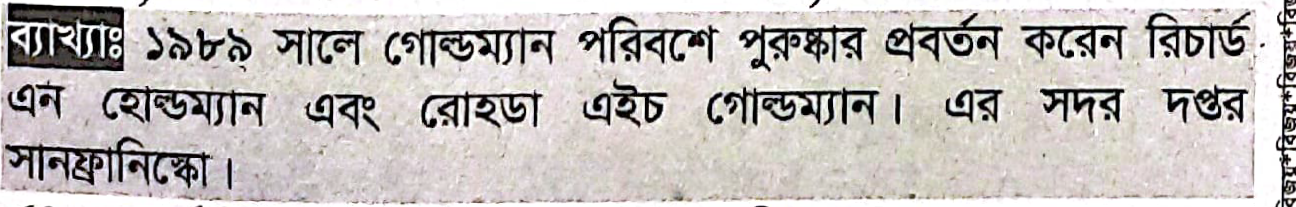 ব্যাখ্যাঃ ১৯৮৯ সালে গোল্ডম্যান পরিবশে পুরুষ্কার প্রবর্তন করেন রিচার্ড
এন হোল্ডম্যান এবং রোহডা এইচ গোল্ডম্যান। এর সদর দপ্তর
সানফ্রানিস্কো।
বিজয়*বিজয়*বিজয়*বি